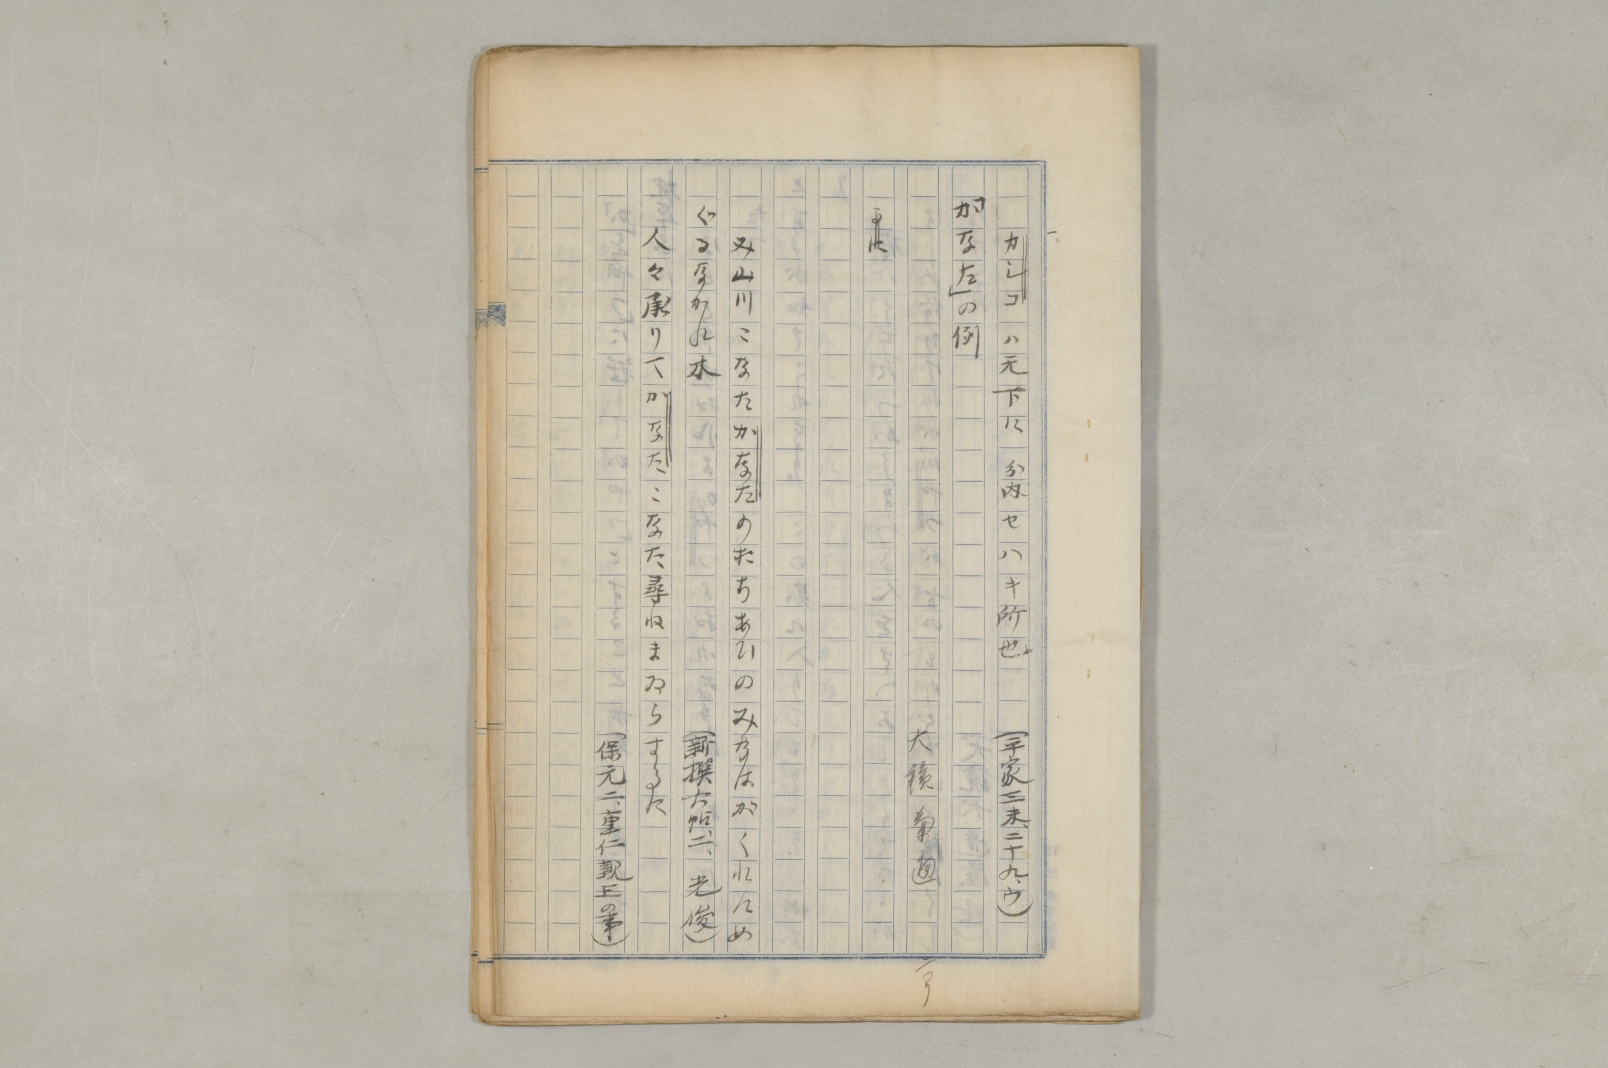 カシコハ元下に分内セハキ所也(平家三末、二十九、ウ)
「かなた」の例
大鏡
更に
み山川こなたかなたのたちあひのみなはがくれにめ
ぐるながれ木(新撰六帖二、光俊)
人々承りてかなたこなた尋ねまゐらするに
(保元二、重仁親王の事)